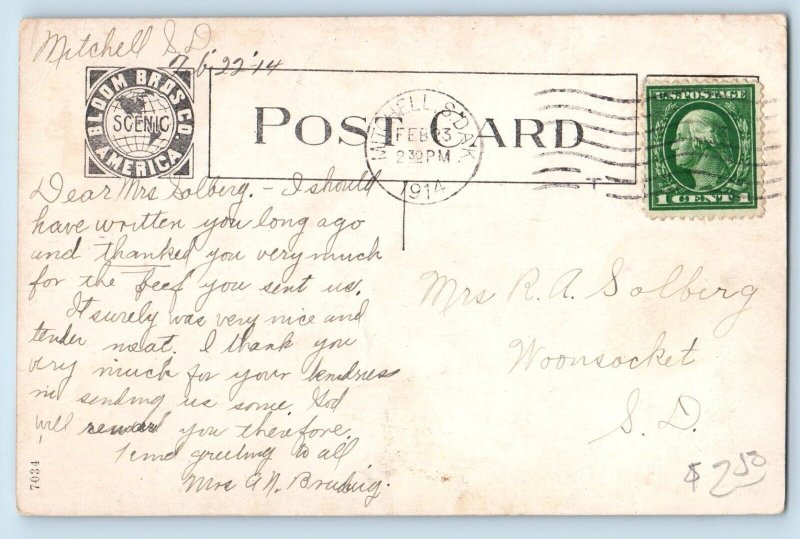 Mitchell S.D.
Feb 22 '14
BLOOM BROS CO
SCENIC
AMERICA
POST CARD
MITCHELL S.DAK.
FEB 23
2 30 PM
1914
U.S. POSTAGE
1 CENT 1
Dear Mrs Solberg. - I should
have written you long ago
and thanked you very much
for the beef you sent us.
It surely was very nice and
tender meat. I thank you
very much for your kindness
in sending us some. God
will reward you therefore.
Kind greeting to all
Mrs A.N.
Mrs R. A. Solberg
Woonsocket
S. D.
$2.50
7034